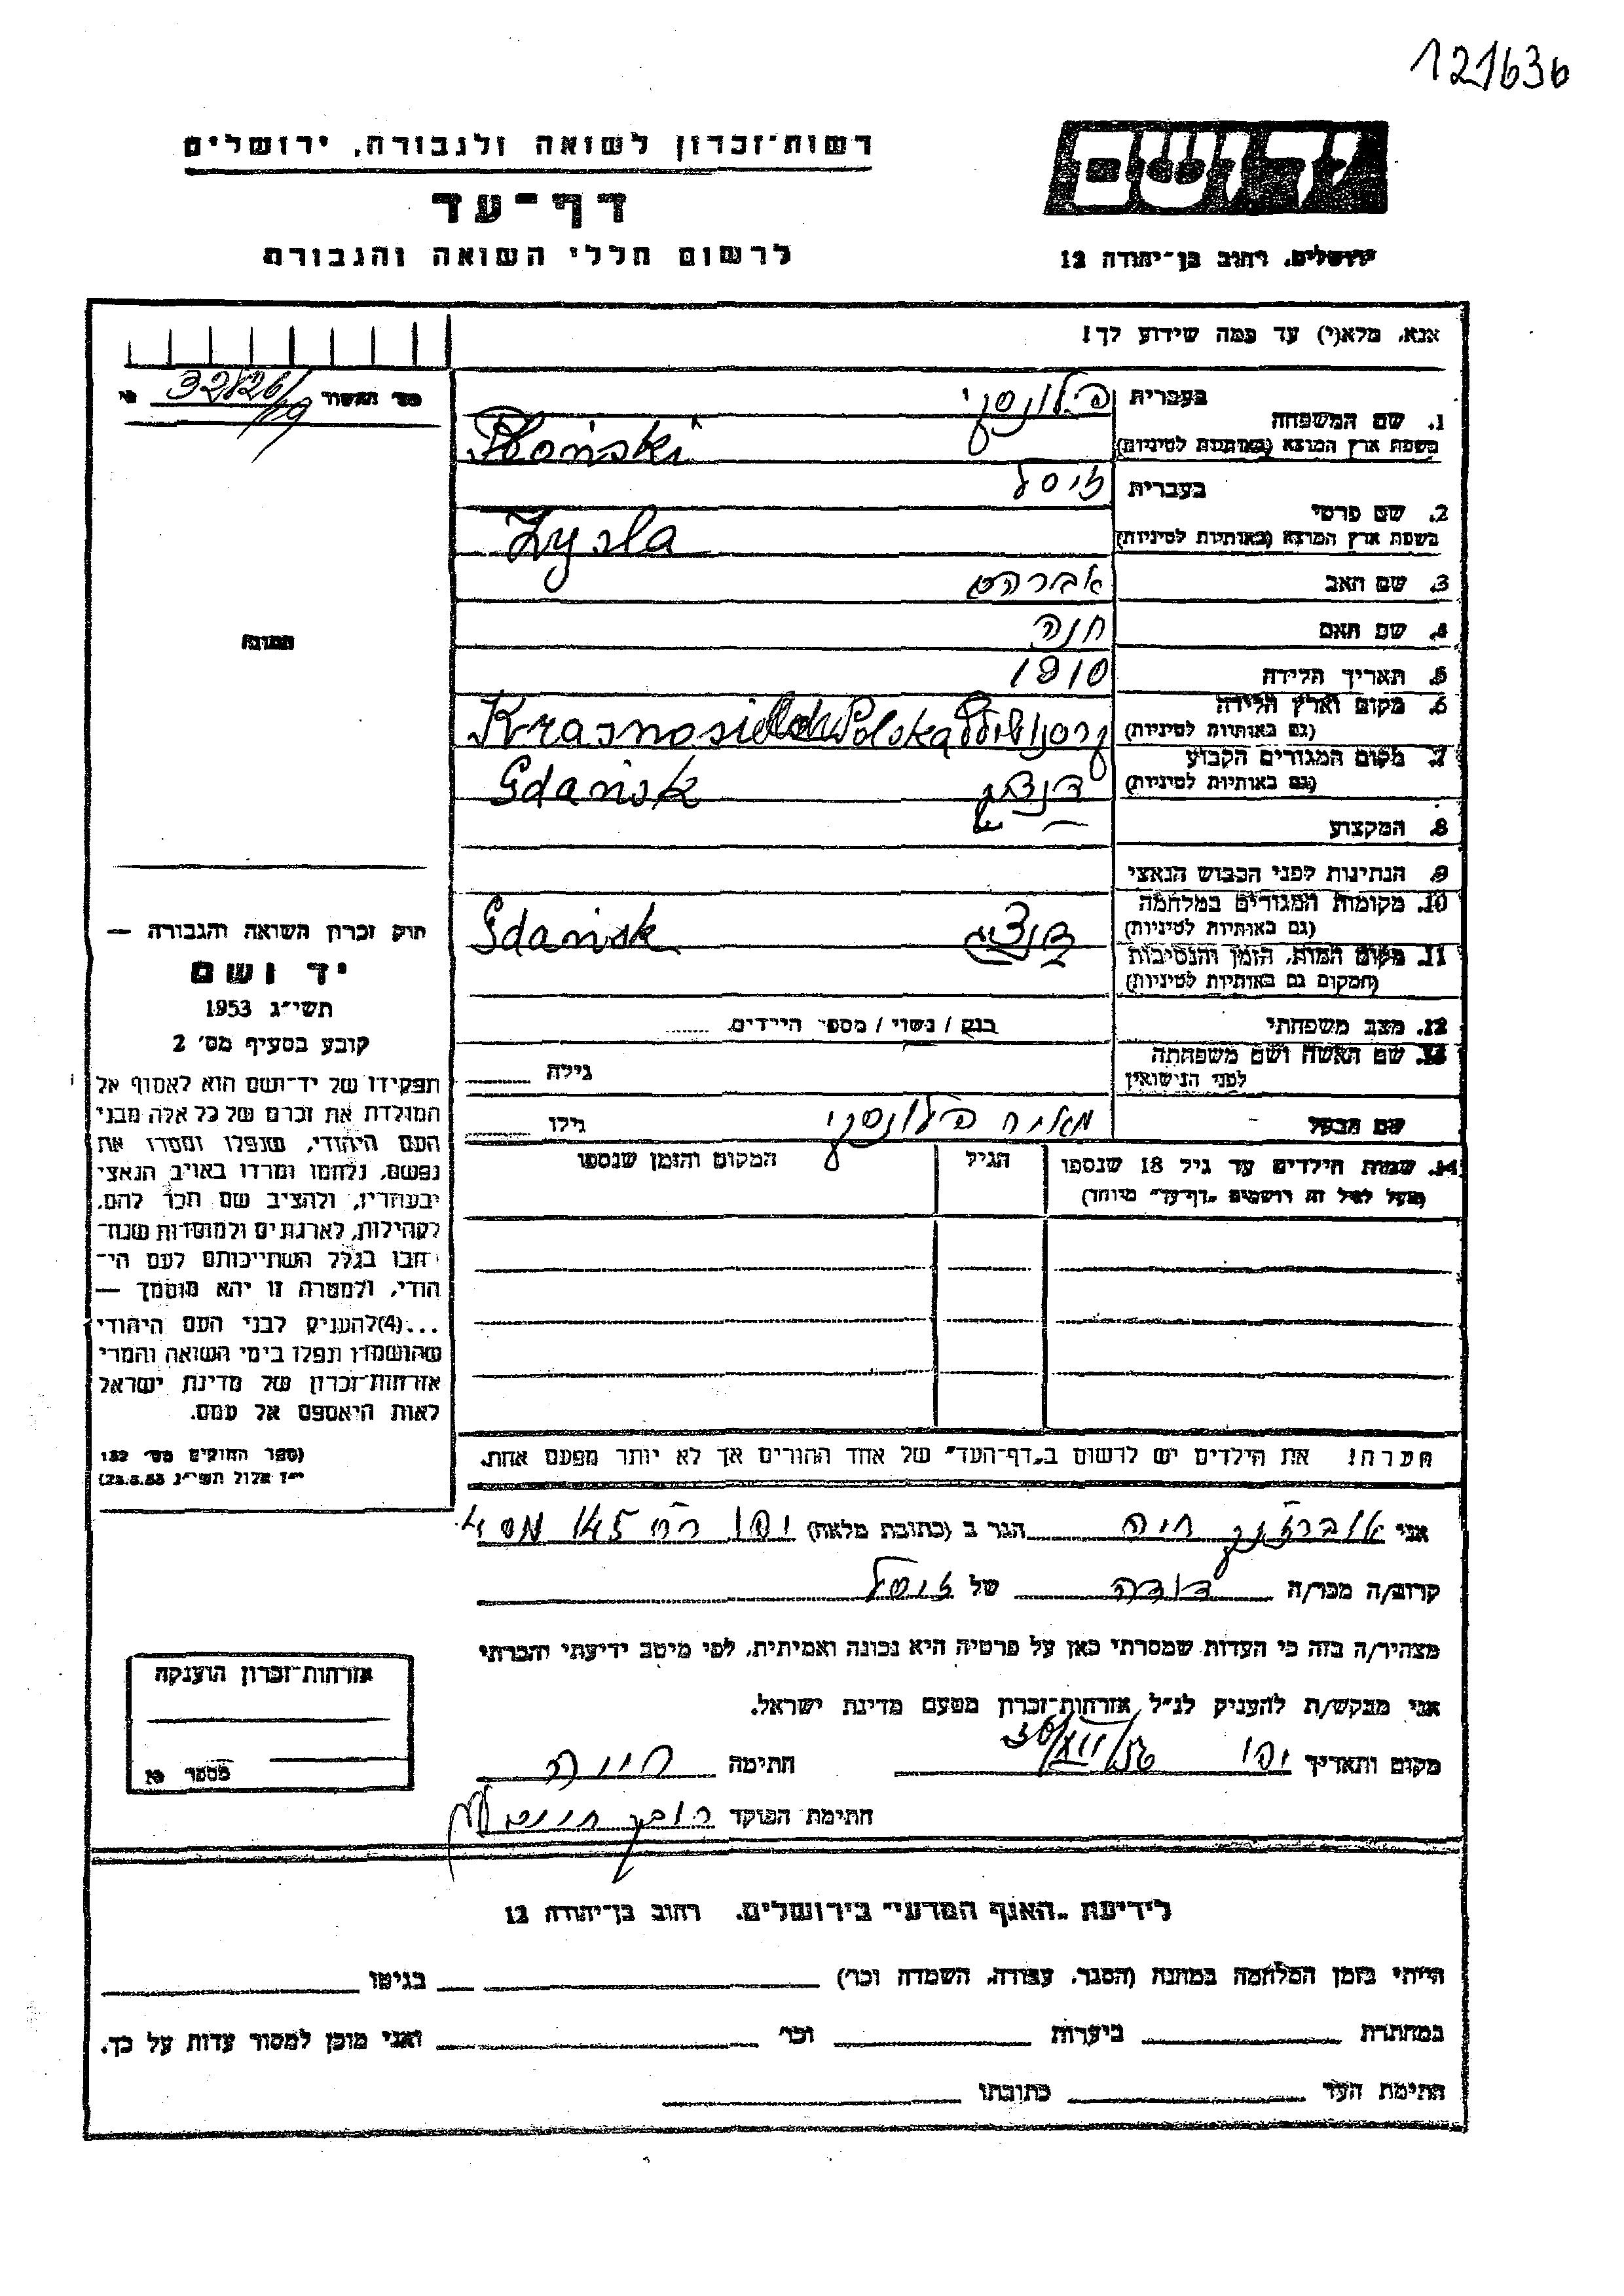 121636
רשות־זכרון לשואה ולגבורה, ירושלים
דף־עד
לרשום חללי השואה והגבורה
יד ושם
ירושלים, רחוב בן־יהודה 12
אנא, מלא(י) עד כמה שידוע לך!
מס' האשור 32826/19
1. שם המשפחה
בעברית פלונסקי
בשפת ארץ המוצא (באותיות לטיניות) Płoński
2. שם פרטי
בעברית זיסל
בשפת ארץ המוצא (באותיות לטיניות) Zysla
3. שם האב אברהם
4. שם האם חנה
5. תאריך הלידה 1910
6. מקום וארץ הלידה
(גם באותיות לטיניות) Polska
7. מקום המגורים הקבוע
(גם באותיות לטיניות) דנציג Gdańsk
8. המקצוע
9. הנתינות לפני הכבוש הנאצי
10. מקומות המגורים במלחמה
(גם באותיות לטיניות) דנציג Gdańsk
11. מקום המות, הזמן והנסיבות
(המקום גם באותיות לטיניות)
12. מצב משפחתי רווק / נשוי / מספר הילדים
13. שם האשה ושם משפחתה
לפני הנישואין גילה
שם הבעל פלונסקי גילו
14. שמות הילדים עד גיל 18 שנספו הגיל המקום והזמן שנספו
(מעל לגיל זה רושמים "דף־עד" מיוחד)
הערה! את הילדים יש לרשום ב"דף־העד" של אחד ההורים אך לא יותר מפעם אחת.
תמונה
חוק זכרון השואה והגבורה —
יד ושם
תשי"ג 1953
קובע בסעיף מס' 2
תפקידו של יד־ושם הוא לאסוף אל
המולדת את זכרם של כל אלה מבני
העם היהודי, שנפלו ומסרו את
נפשם, נלחמו ומרדו באויב הנאצי
ובעוזריו, ולהציב שם וזכר להם,
לקהילות, לארגונים ולמוסדות שנח־
רבו בגלל השתייכותם לעם הי־
הודי, ולמטרה זו יהא מוסמך —
...(4)להעניק לבני העם היהודי
שהושמדו ונפלו בימי השואה והמרי
אזרחות־זכרון של מדינת ישראל
לאות היאספם אל עמם.
(ספר החוקים מס' 132
י"ז אלול תשי"ג 28.8.53)
אני חיה הגר ב (כתובת מלאה) יפו 145
קרוב/ה מכר/ה דודה של זיסל
מצהיר/ה בזה כי העדות שמסרתי כאן על פרטיה היא נכונה ואמיתית, לפי מיטב ידיעתי והכרתי
אני מבקש/ת להעניק לנ"ל אזרחות־זכרון מטעם מדינת ישראל.
מקום ותאריך יפו 30/XII/56 חתימה חיה
חתימת הפוקד
אזרחות־זכרון הוענקה
מספר
לידיעת "האגף המדעי" בירושלים. רחוב בן־יהודה 12
הייתי בזמן המלחמה במחנה (הסגר, עבודה, השמדה וכו') בגיטו
במחתרת ביערות וכו' ואני מוכן למסור עדות על כך.
חתימת העד כתובתו